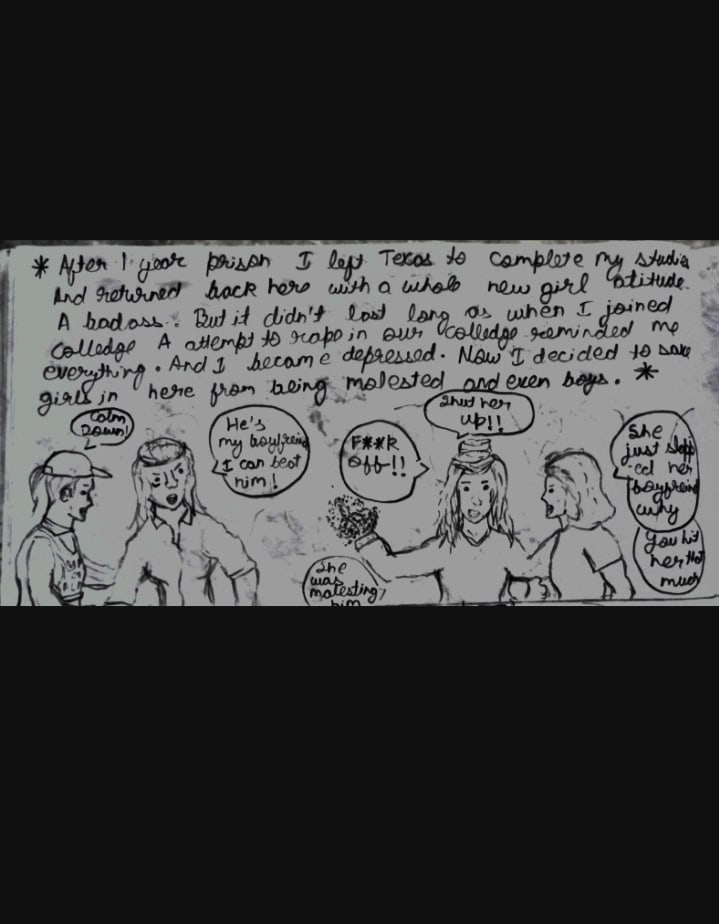 * After 1 year prison I left Texas to complete my studies
And returned back here with a whole new girl atitude.
A badass. But it didn't last long as when I joined
colledge A attempt to rape in our colledge reminded me
everything. And I became depressed. Now I decided to save
girls in here from being molested and even boys. *
Calm
Down!
He's
my boyfreind
I can beat
him!
F**k
off-!!
Shut her
up!!
She
was
molesting
him
She
just slapp
ed her
boyfreind
why
You hit
her that
much